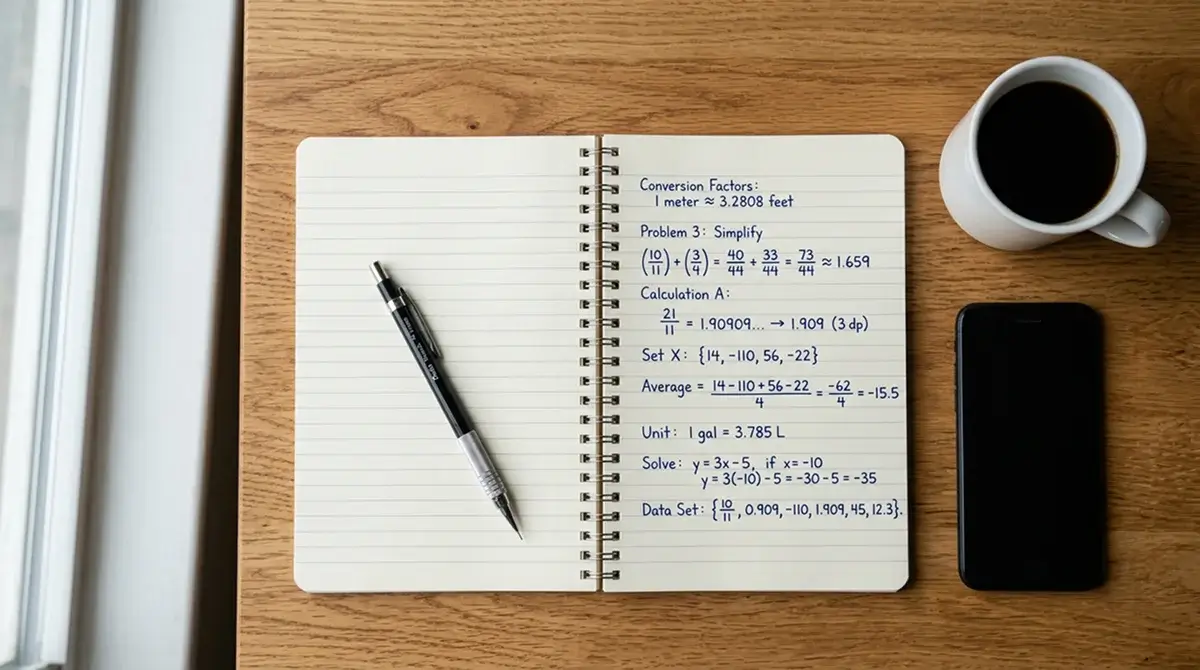 Conversion Factors:
1 meter ≈ 3.2808 feet
Problem 3: Simplify
(10/11) + (3/4) = 40/44 + 33/44 = 73/44 ≈ 1.659
Calculation A:
21/11 = 1.90909... → 1.909 (3 dp)
Set X: {14, -110, 56, -22}
Average = (14 - 110 + 56 - 22)/4 = -62/4 = -15.5
Unit: 1 gal = 3.785 L
Solve: y = 3x - 5, if x = -10
y = 3(-10) - 5 = -30 - 5 = -35
Data Set: {10/11, 0.909, -110, 1.909, 45, 12.3}.